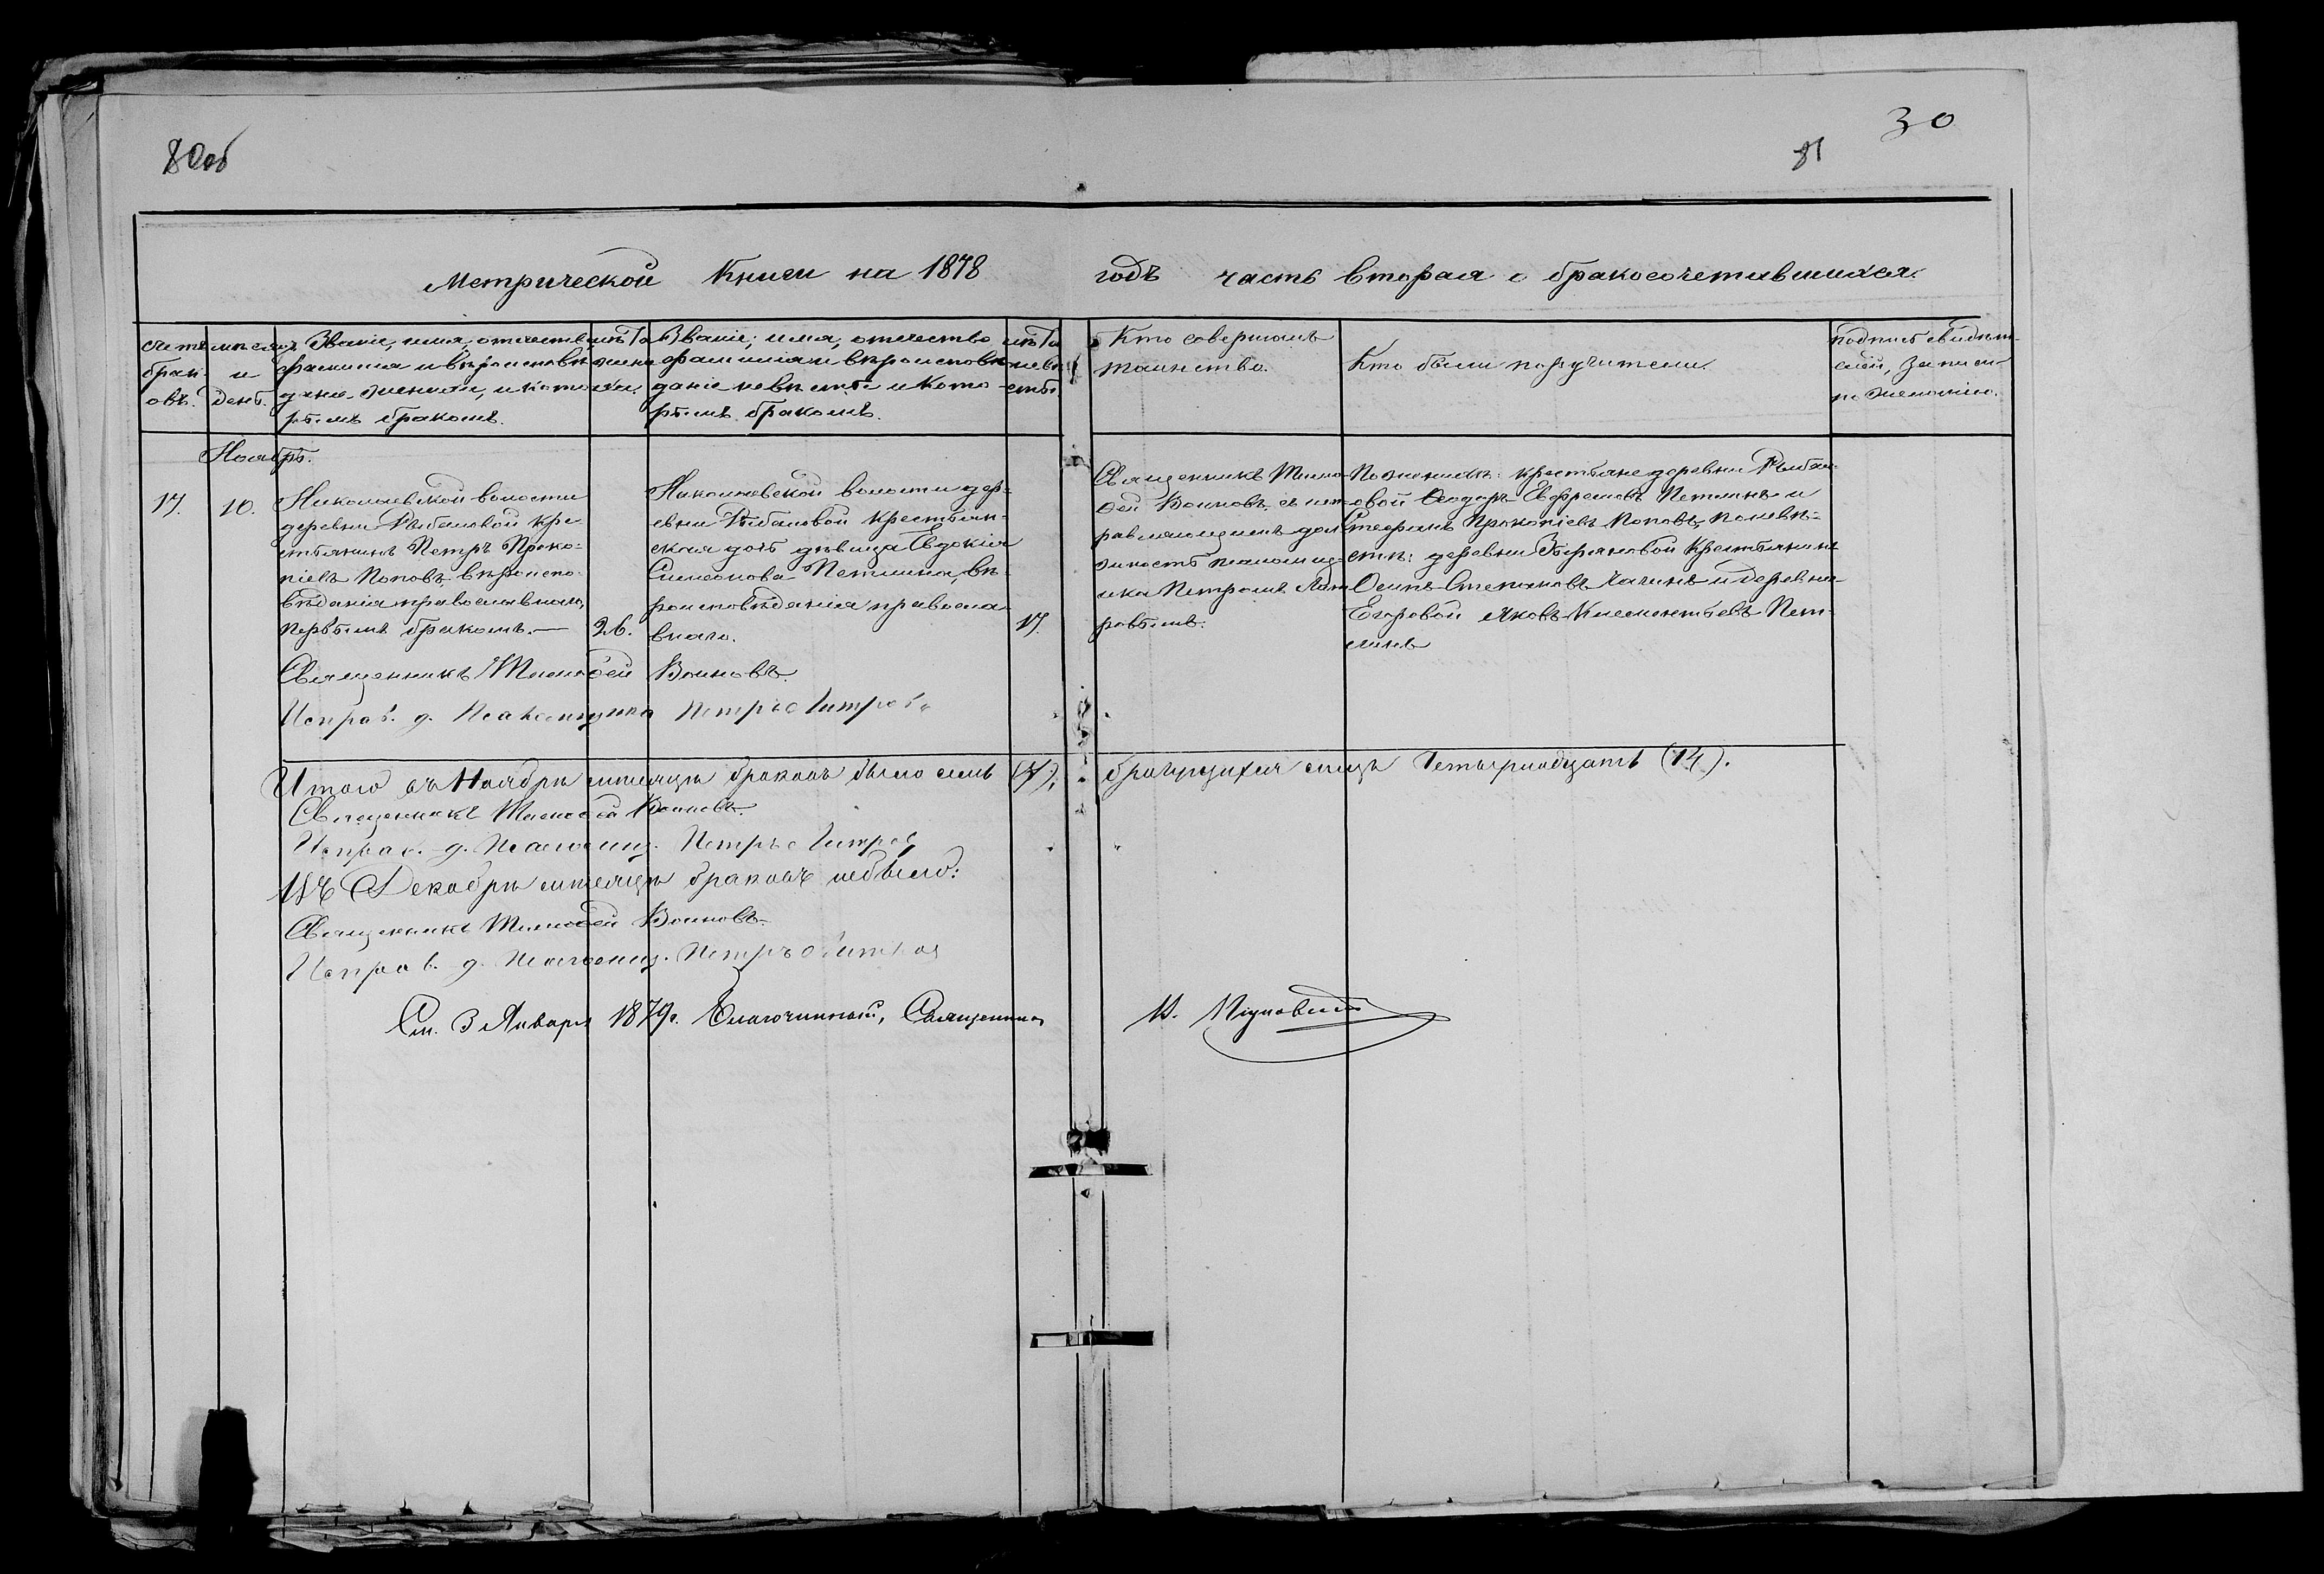 80об
81
30
Метрической Книги на 1878 годъ часть вторая о бракосочетавшихся.
счетъ браковъ.
мѣсяцъ и день.
Званіе, имя, отчество
фамилія и вѣроисповѣ
даніе жениха, и кото
рымъ бракомъ.
лѣта жениха.
Званіе, имя, отчество
фамилія и вѣроисповѣ
даніе невѣсты и кото-
рымъ бракомъ.
лѣта невѣсты.
Кто совершалъ
таинство.
Кто были поручители.
подпись свидѣт-
елей, записи
по желанію.
Ноябрь.
17.
10.
Николаевской волости
деревни Рыбаловой кре
стьянинъ Петръ Проко-
піевъ Поповъ, вѣроиспо-
вѣданія православнаго,
первымъ бракомъ.—
26.
Николаевской волости дер-
евни Рыбаловой крестьян-
ская дочь дѣвица Евдокія
Симеонова Петлина, вѣ-
роисповѣданія правосла-
внаго.
17.
Священникъ Тимо
ѳей Воиновъ, съ исп-
равляющимъ дол
жность псаломщ-
ика Петромъ
ровымъ.
По женихѣ: крестьяне деревни Рыбал-
овой Ѳеодоръ Ефремовъ Петлинъ и
Стефанъ Прокопіевъ Поповъ, по невѣ-
стѣ: деревни Зыряновой крестьянинъ
Осипъ Степановъ и деревни
Егоровой Яковъ Клементьевъ Пет-
линъ
Священникъ Тимоѳей Воиновъ.
Исправ. д. Псаломщика Петръ
Итого въ Ноябрѣ мѣсяцѣ браковъ было семь (7), брачущихся лицъ Четырнадцать (14).
Священникъ Тимоѳей Воиновъ.
Исправ. д. Псаломщ. Петръ
Въ Декабрѣ мѣсяцѣ браковъ небыло:
Священникъ Тимоѳей Воиновъ.
Исправ. д. Псаломщ. Петръ
См. 3 Января 1879г. Благочинный, Священникъ